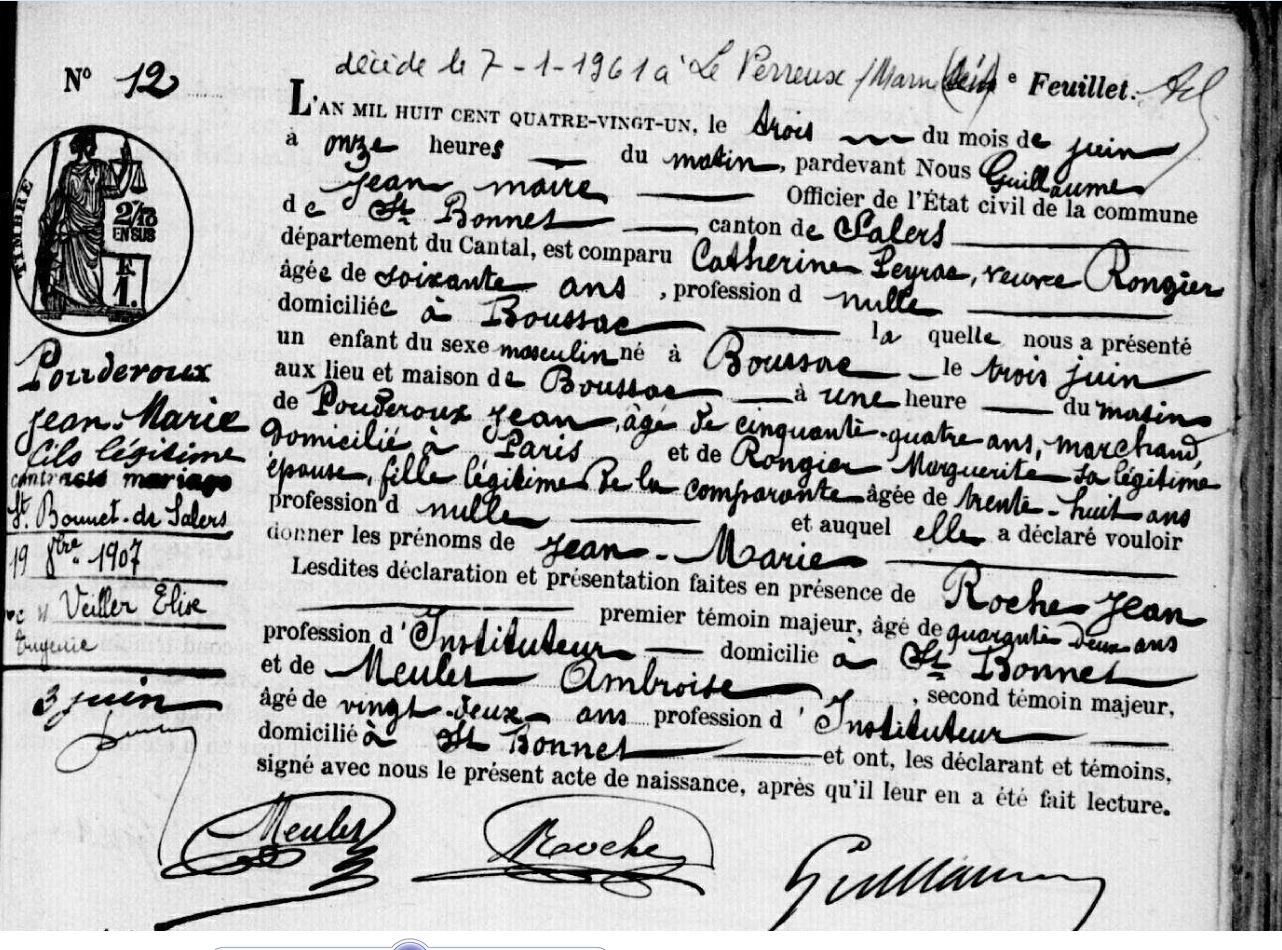 décédé le 7-1-1961 à Le Perreux /Marne
N° 12
e Feuillet.
L'AN MIL HUIT CENT QUATRE-VINGT-UN, le trois du mois de juin
à onze heures du matin, pardevant Nous Guillaume
Jean maire Officier de l'État civil de la commune
de St Bonnet canton de Salers
département du Cantal, est comparu Catherine Peyrac, veuve Rongier
âgée de soixante ans, profession d nulle
domiciliée à Boussac la quelle nous a présenté
un enfant du sexe masculin né à Boussac le trois juin
aux lieu et maison de Boussac à une heure du matin
de Pouderoux Jean, âgé de cinquante-quatre ans, marchand,
domicilié à Paris et de Rongier Marguerite sa légitime
épouse, fille légitime de la comparante âgée de trente-huit ans
profession d nulle et auquel elle a déclaré vouloir
donner les prénoms de Jean-Marie
Lesdites déclaration et présentation faites en présence de Roche Jean
premier témoin majeur, âgé de quarante deux ans
profession d'Instituteur domicilié à St Bonnet
et de Meulet Ambroise, second témoin majeur,
âgé de vingt-deux ans profession d'Instituteur
domicilié à St Bonnet et ont, les déclarant et témoins,
signé avec nous le présent acte de naissance, après qu'il leur en a été fait lecture.
TIMBRE
2/10
EN SUS
F.
1.
Pouderoux
Jean-Marie
fils légitime
mariage
St Bonnet-de Salers
19 8bre 1907
Veiller Elise
Eugenie
3 juin
Meulet
Roche
Guillaume